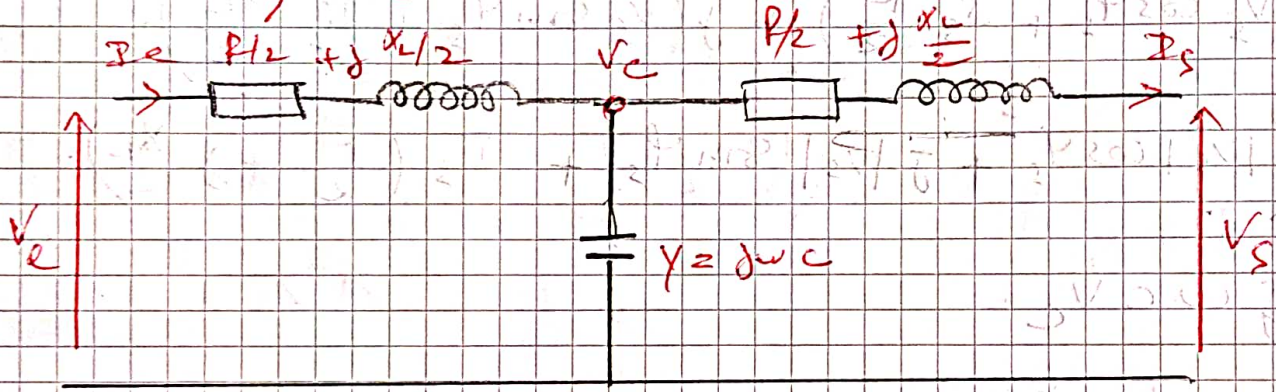 Ie R/2 +j XL/2 Vc R/2 +j XL/2 Is
Ve Y = jωc Vs